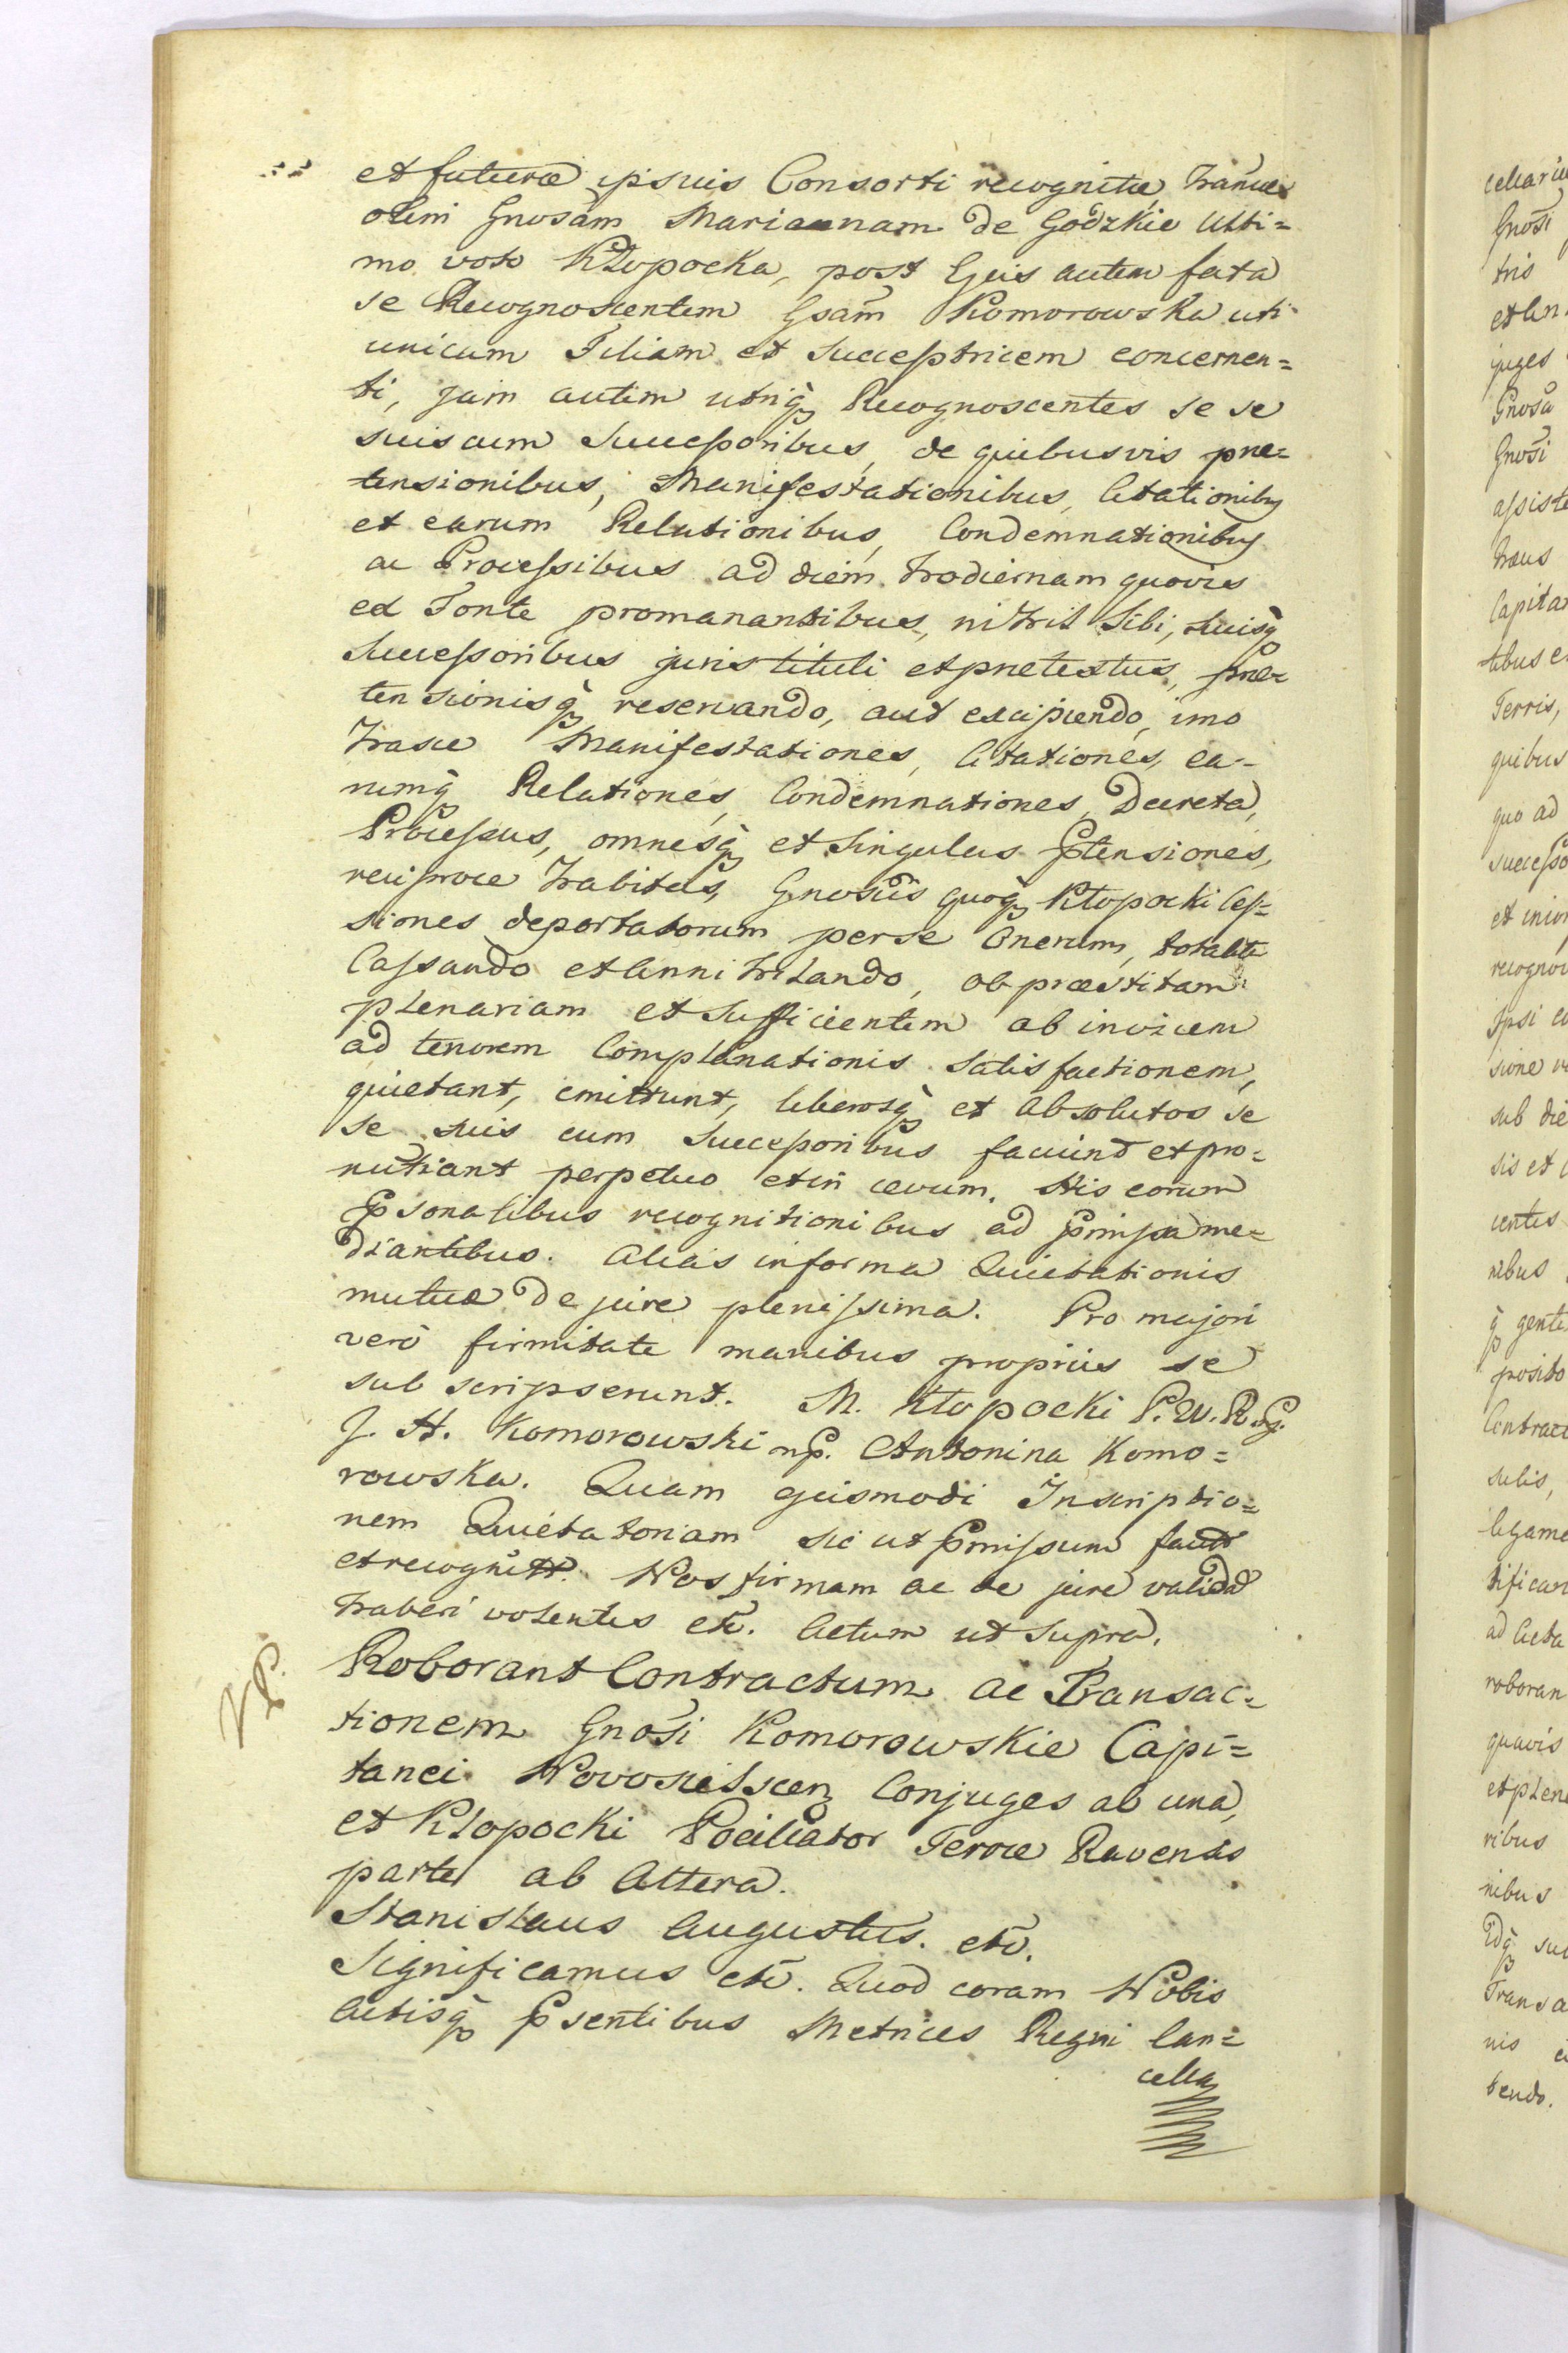 et futuræ ipsuis Consorti recognitæ, hanue
olim Gnosam Mariannam de Godzkie Ulti=
mo voto Kłopocka, post Ejus autem fata
se Recognoscentem Gsam Komorowska uti
unicam Filiam et Succeptricem concernen=
ti, jam autem utriq̀ Recognoscentes se se
suis cum Successoribus, de quibusvis præ=
tensionibus, Manifestationibus, Citationibq
et earum Relationibus, Condemnationibq
ac Processibus ad diem hodiernam quovis
ex Fonte promanantibus, nihil Sibi, Suisq̀
Successoribus juris tituli et prætextus, præ=
tensionisq̀ reservando, aut excipiendo, imo
hasce Manifestationes, Citationes, ea-
rumq̀ Relationes, Condemnationes, Decreta,
Processus, omnesq̀ et Singulas Ptensiones,
reciproce habitas, Gnosus quoq̀ Kłopocki Ces=
siones deportatorum per se Onerum, totalite
Cassando et Annihilando, ob præstitam
plenariam et Sufficientem ab invicem
ad tenorem Complanationis Satisfactionem,
quietant, emittunt, liberosq̀ et Absolutos se
se suis cum Successoribus faciunt et pro=
nutiant perpetuo et in ævum. His eorum
Psonalibus recognitionibus ad Pmissa me=
diantibus. Alias in forma Quietationis
mutuæ de jure plenissima. Pro majori
verò firmitate manibus propriis se
sub scripserunt. M. Kłopocki P. W. R. mp.
J. H. Komorowski mp. Antonina Komo=
rowska. Quam ejusmodi Inscriptio=
nem Quietatoriam sic ut Pmissum
et recognitt. Nos firmam ac de jure validā
haberi volentes etc. Actum ut Supra.
Roborant Contractum ac Transac=
tionem Gnosi Komorowskie Capi=
tanei Novosielscen Conjuges ab una,
et Kłopocki Pocillator Terræ Ravensis
parte ab Altera.
Stanislaus Augustus. etc.
Significamus etc. Quod coram Nobis
Actisq̀ Psentibus Metrices Regni Can=
cella